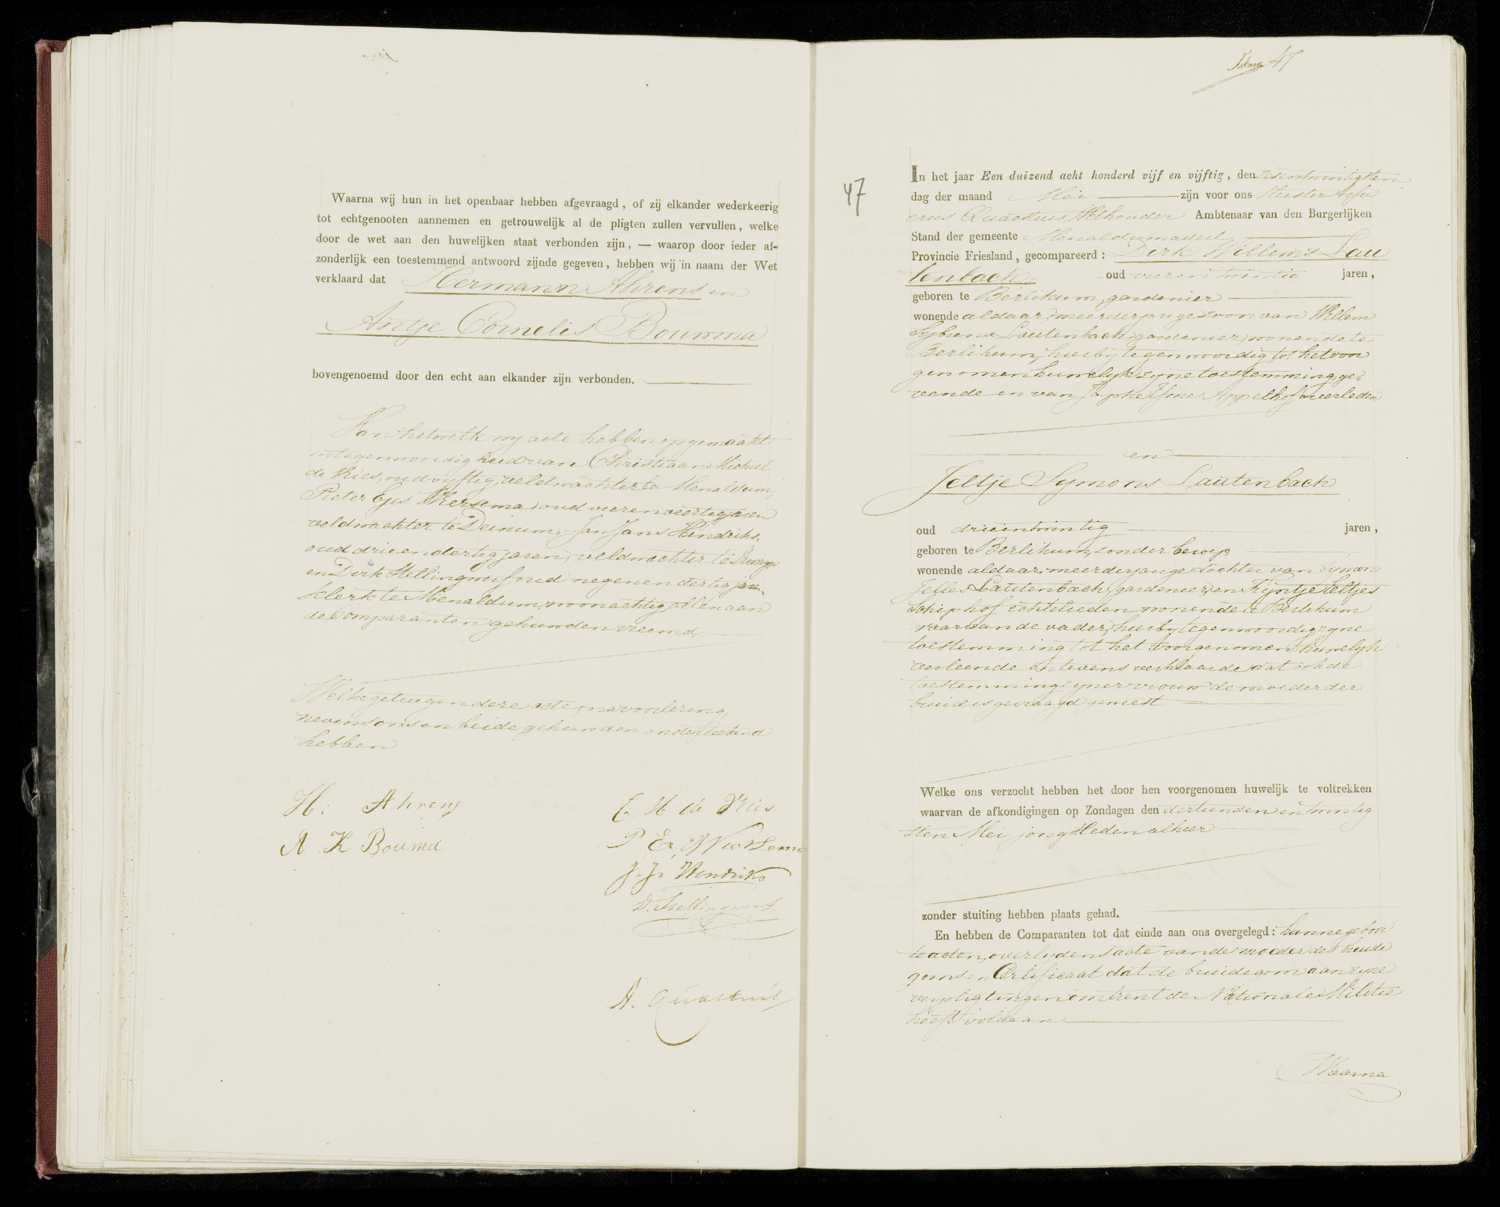 Waarna wij hun in het openbaar hebben afgevraagd, of zij elkander wederkeerig
tot echtgenooten aannemen en getrouwelijk al de pligten zullen vervullen, welke
door de wet aan den huwelijken staat verbonden zijn, — waarop door ieder af-
zonderlijk een toestemmend antwoord zijnde gegeven, hebben wij in naam der Wet
verklaard dat Hermann Ahrens en
Antje Cornelis Bouwma
bovengenoemd door den echt aan elkander zijn verbonden.
Van hetwelk wij acte hebben opgemaakt
in tegenwoordigheid van Christiaan Michiel
de Vries, oud vijftig, veldwachter te Menaldum,
Pieter Eyes Wiersema oud vierenveertig jaren
veldwachter te Deinum, Jan Jans Hendriks,
oud drieendertig jaren, veldwachter te
en Dirk Hellingwerf oud negenendertig jaren,
klerk te Menaldum, woonachtig, allen aan
de comparanten gehuwden vreemd
Welke getuigen deze acte na voorlezing
nevens ons en beide gehuwden onderteekend
hebben
H: Ahrens
A K Bouma
C M de Vries
P. E. Wiersema
J. J. Hendriks
D. Hellingwerf
A. Quaestius
47
47
In het jaar Een duizend acht honderd vijf en vijftig, den zesentwintigsten
dag der maand Mei zijn voor ons Meester
Quaestius Ambtenaar van den Burgerlijken
Stand der gemeente Menaldumadeel
Provincie Friesland, gecompareerd: Dirk Willems Lau
tenbach oud vierentwintig jaren,
geboren te Berlikum, gardenier
wonende aldaar, meerderjarige zoon van Willem
Sybrens Lautenbach, gardenier, wonende te
Berlikum, hierbij tegenwoordig tot het voor
genomen huwelijk zijne toestemming ge
vende en van Appelhof overleden
en
Jeltje Symons Lautenbach
oud drieentwintig jaren,
geboren te Berlikum, zonder beroep
wonende aldaar, meerderjarige dochter van Symon
Jelles Lautenbach, gardenier, en Tryntje Jeltjes
Schiphof echtelieden wonende te Berlikum
waarvan de vader, hierbij tegenwoordig zijne
toestemming tot het voorgenomen huwelijk
verleende en tevens verklaarde dat ook de
toestemming zijner vrouw de moeder der
bruid is gevraagd geweest
Welke ons verzocht hebben het door hen voorgenomen huwelijk te voltrekken
waarvan de afkondigingen op Zondagen den dertienden en twintig
sten Mei jongstleden alhier
zonder stuiting hebben plaats gehad.
En hebben de Comparanten tot dat einde aan ons overgelegd: hunne geboor
te acten, overlydens acte van de moeder des bruide
goms en Certificaat dat de bruidegom aan zijne
verpligtingen omtrent de Nationale Militie
heeft voldaan
Waarna